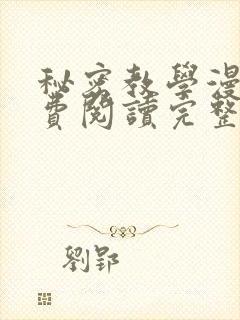 秘密教學漫
費閱讀完整
劉郢